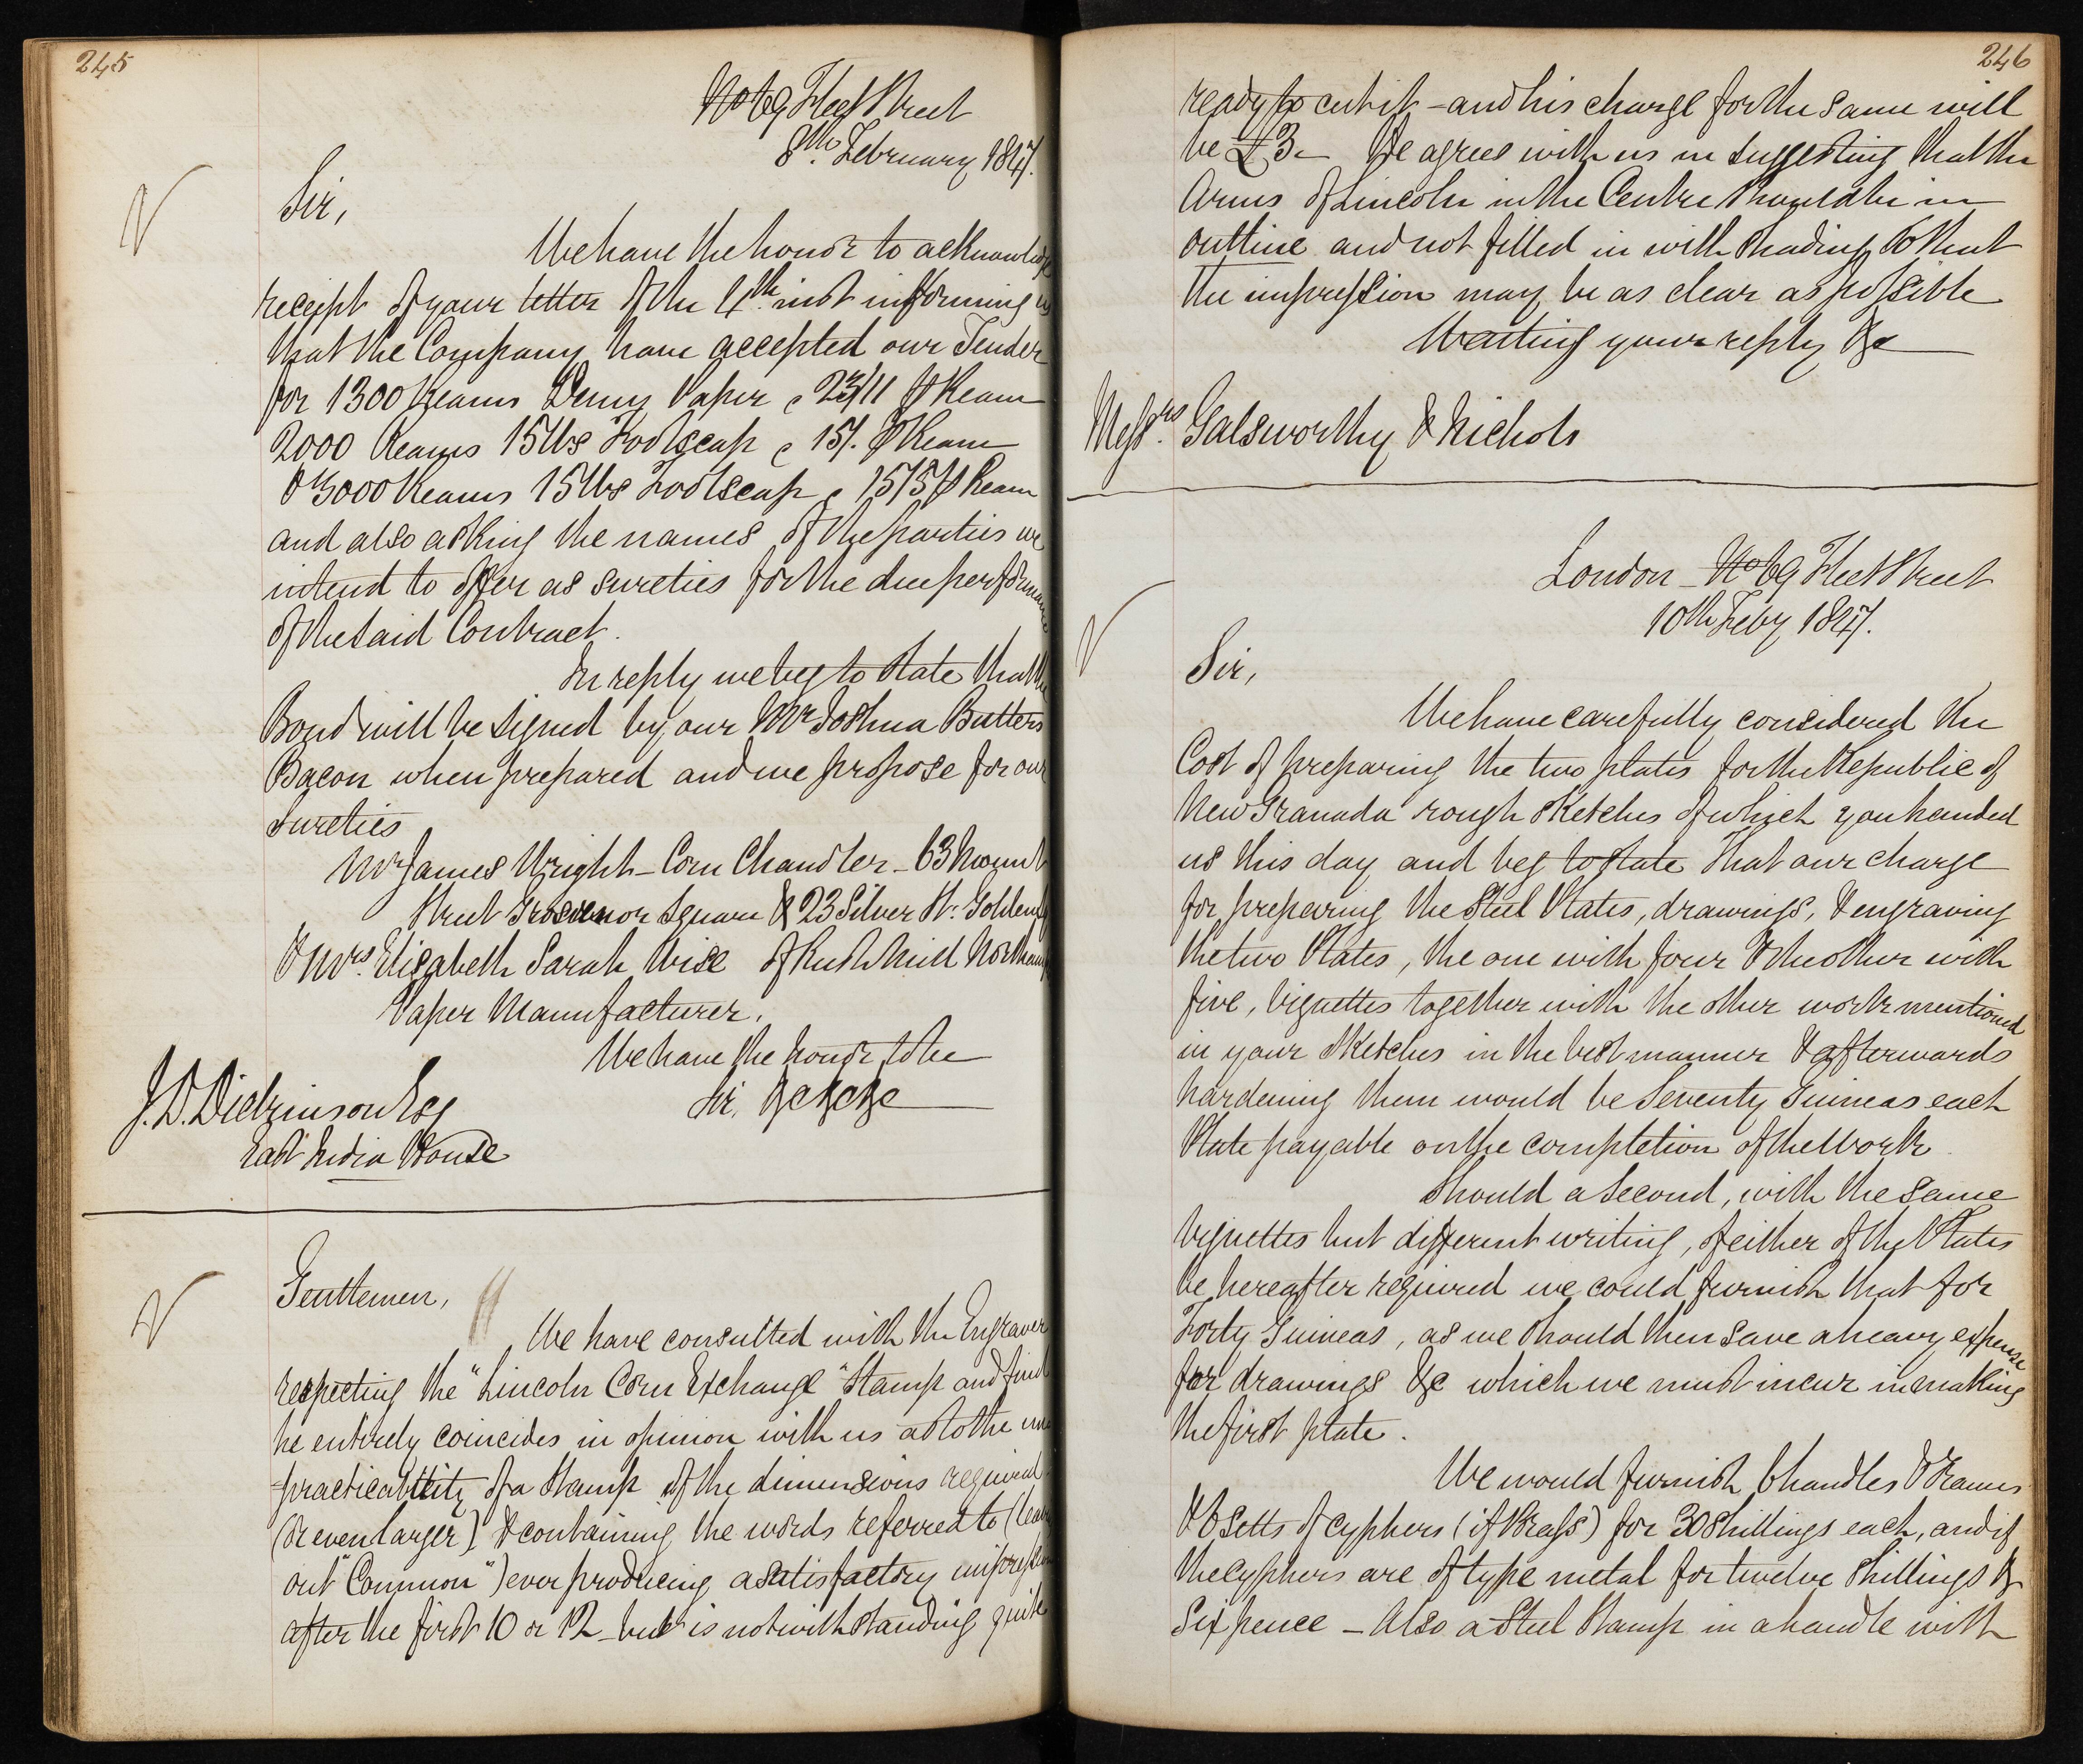 245
No 69 Fleet Street
8th. February 1847.
Sir,
We have the honor to acknowledge
receipt of your letter of the 4th. inst informing us
that the Company have accepted our Tender
for 1300 Reams Demy Paper @ 23/11 ⅌ Ream
2000 Reams 15lbs Foolscap @ 15/. ⅌ Ream
& 3000 Reams 15lbs Foolscap @ 15/5 ⅌ Ream
and also asking the names of the parties we
intend to offer as sureties for the due performance
of the said Contract.
In reply we beg to state that the
Bond will be signed by our Mr Joshua Butters
Bacon when prepared and we propose for our
Sureties
Mr James Wright - Corn Chandler - 63 Mount
Street Grosvenor Square & 23 Silver St. Golden Sq
& Mrs. Elizabeth Sarah Wise of Rush Mill Northamp
Paper Manufacturer.
We have the honor to be
Sir, &c &c &c
J. D. Dickinson Esq
East India House
Gentlemen,
We have consulted with the Engraver
respecting the "Lincoln Corn Exchange" Stamp and find
he entirely coincides in opinion with us as to the im
-practicability of a Stamp of the dimensions required
(or even larger) & containing the words referred to (leaving
out "Common") ever producing a satisfactory impression
after the first 10 or 12 - but is notwithstanding quite
246
ready to cut it - and his charge for the same will
be £3 - He agrees with us in suggesting that the
Arms of Lincoln in the Centre should be in
outline and not filled in with shading so that
the impression may be as clear as possible
Waiting your reply &c
Messrs. Galsworthy & Nichols
London - No 69 Fleet Street
10th Feby 1847.
Sir,
We have carefully considered the
Cost of preparing the two plates for the Republic of
New Granada rough sketches of which you handed
us this day and beg to state that our charge
for preparing the Steel Plates, drawings, & engraving
the two Plates, the one with four & the other with
five, vignettes together with the other work mentioned
in your sketches in the best manner & afterwards
hardening them would be Seventy Guineas each
Plate payable on the completion of the Work
Should a second, with the same
vignettes but different writing, of either of the Plates
be hereafter required we could furnish that for
Forty Guineas, as we should then save a heavy expense
for drawings &c which we must incur in making
the first plate.
We would furnish 6 handles & Frames
& 6 setts of cyphers (if Brass) for 30 Shillings each, and if
the cyphers are of type metal for twelve Shillings &
Sixpence - Also a Steel Stamp in a handle with